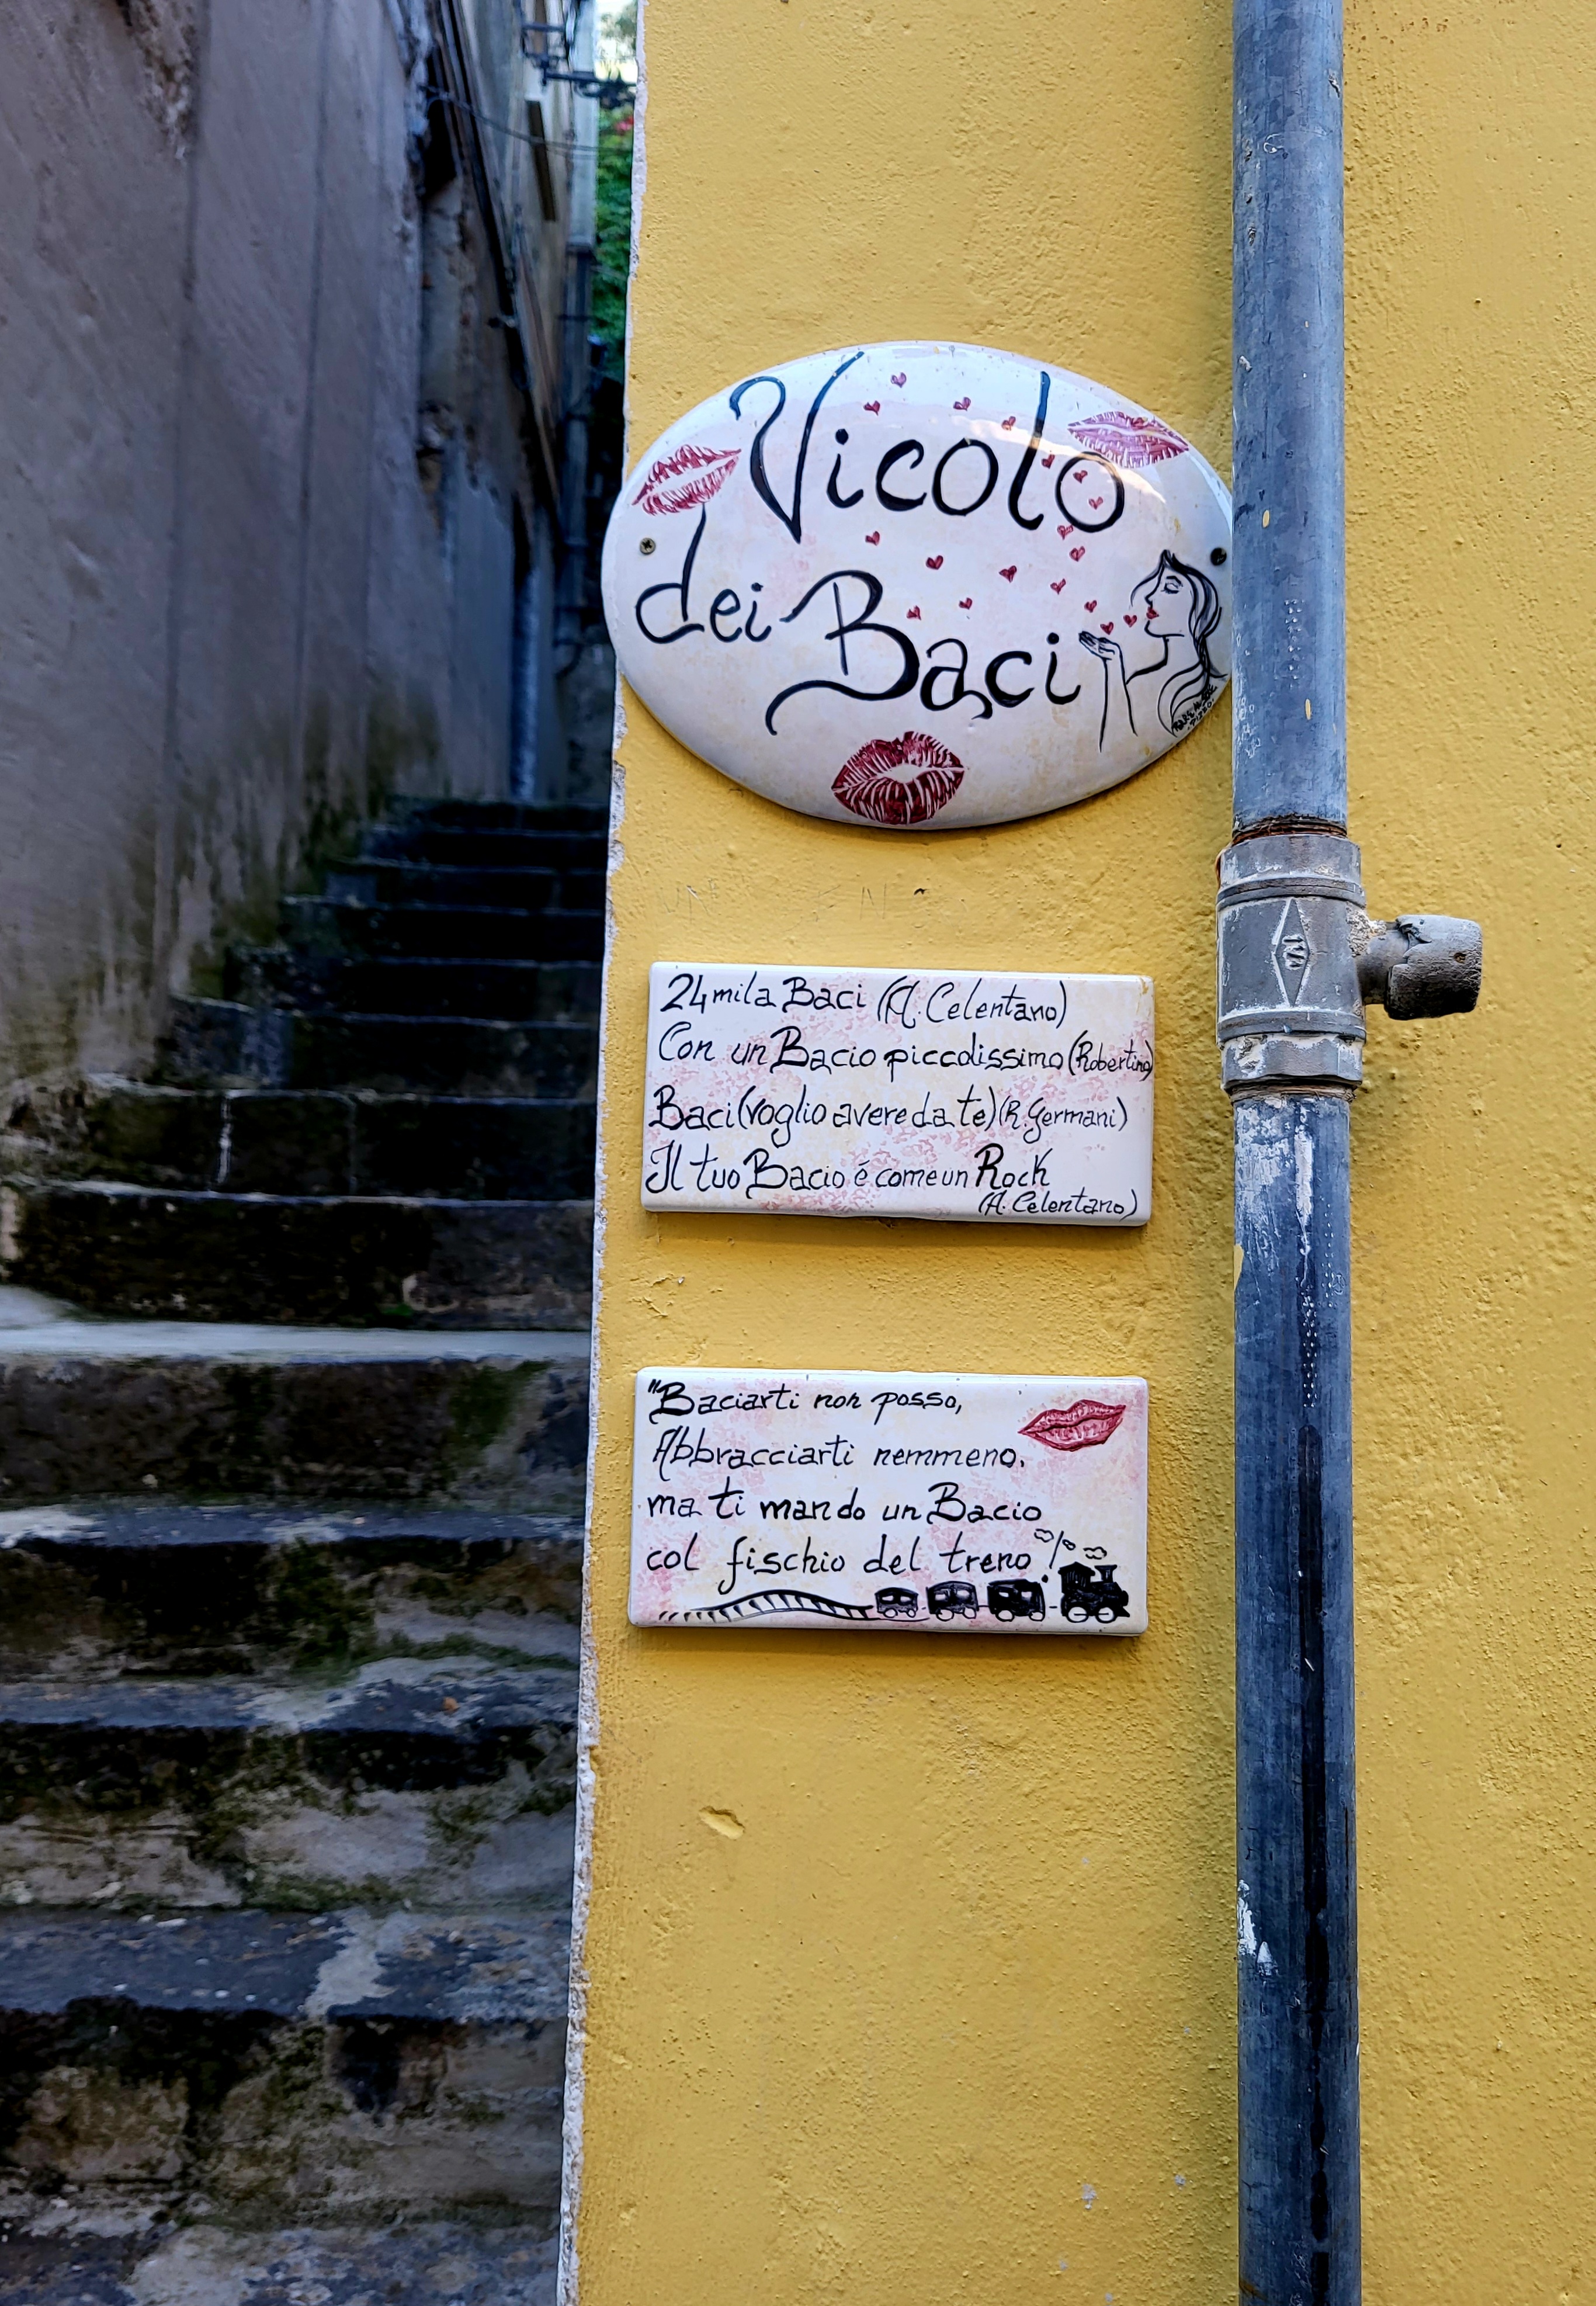 Vicolo
dei Baci
24mila Baci (A. Celentano)
Con un Bacio piccolissimo (Robertino)
Baci (voglio avere da te) (R. Germani)
Il tuo Bacio é come un Rock
(A. Celentano)
"Baciarti non posso,
Abbracciarti nemmeno.
ma ti mando un Bacio
col fischio del treno"